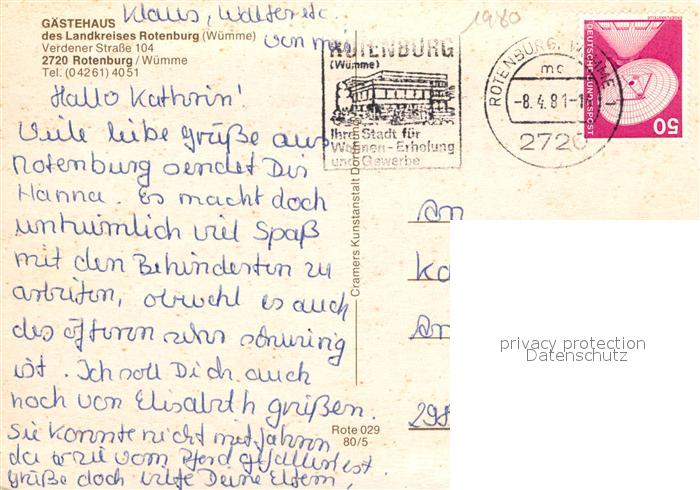 Klaus, Walter etc.
von mir
1980
GÄSTEHAUS
des Landkreises Rotenburg (Wümme)
Verdener Straße 104
2720 Rotenburg / Wümme
Tel. (0 42 61) 40 51
ROTENBURG
(Wümme)
Ihre Stadt für
Wohnen - Erholung
und Gewerbe
ROTENBURG, WÜMME 1
mc
-8.4.81-1
2720
DEUTSCHE BUNDESPOST
50
Hallo Kathrin!
Viele liebe Grüße aus
Rotenburg sendet Dir
Hanna. Es macht doch
unheimlich viel Spaß
mit den Behinderten zu
arbeiten, obwohl es auch
des öfteren sehr schwierig
ist. Ich soll Dich auch
noch von Elisabeth grüßen.
Sie konnte nicht mitfahren
da sie vom Pferd gefallen ist.
Grüße doch bitte Deine Eltern,
Cramers Kunstanstalt Dortmund
Rote 029
80/5
An
298
privacy protection
Datenschutz